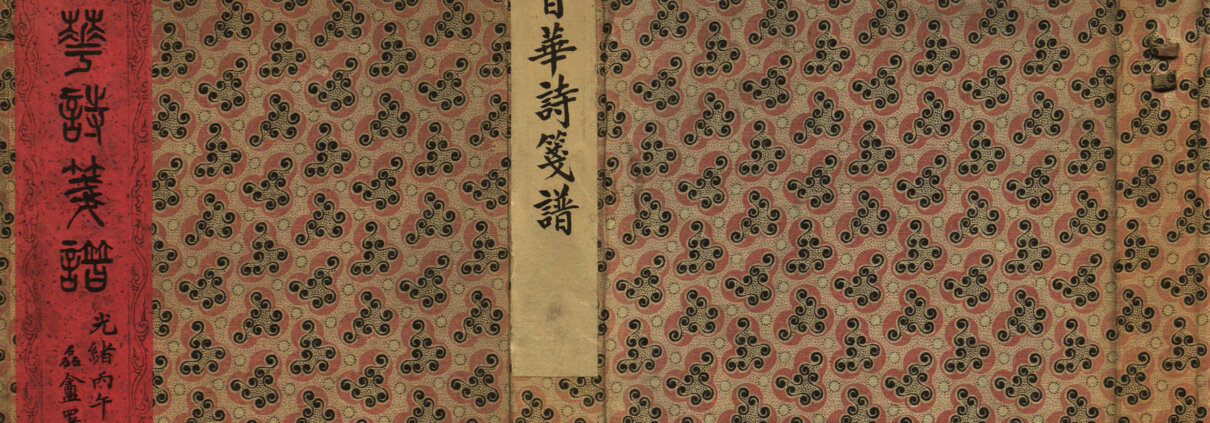 華詩箋譜
華詩箋譜
光緒丙午
磊盦